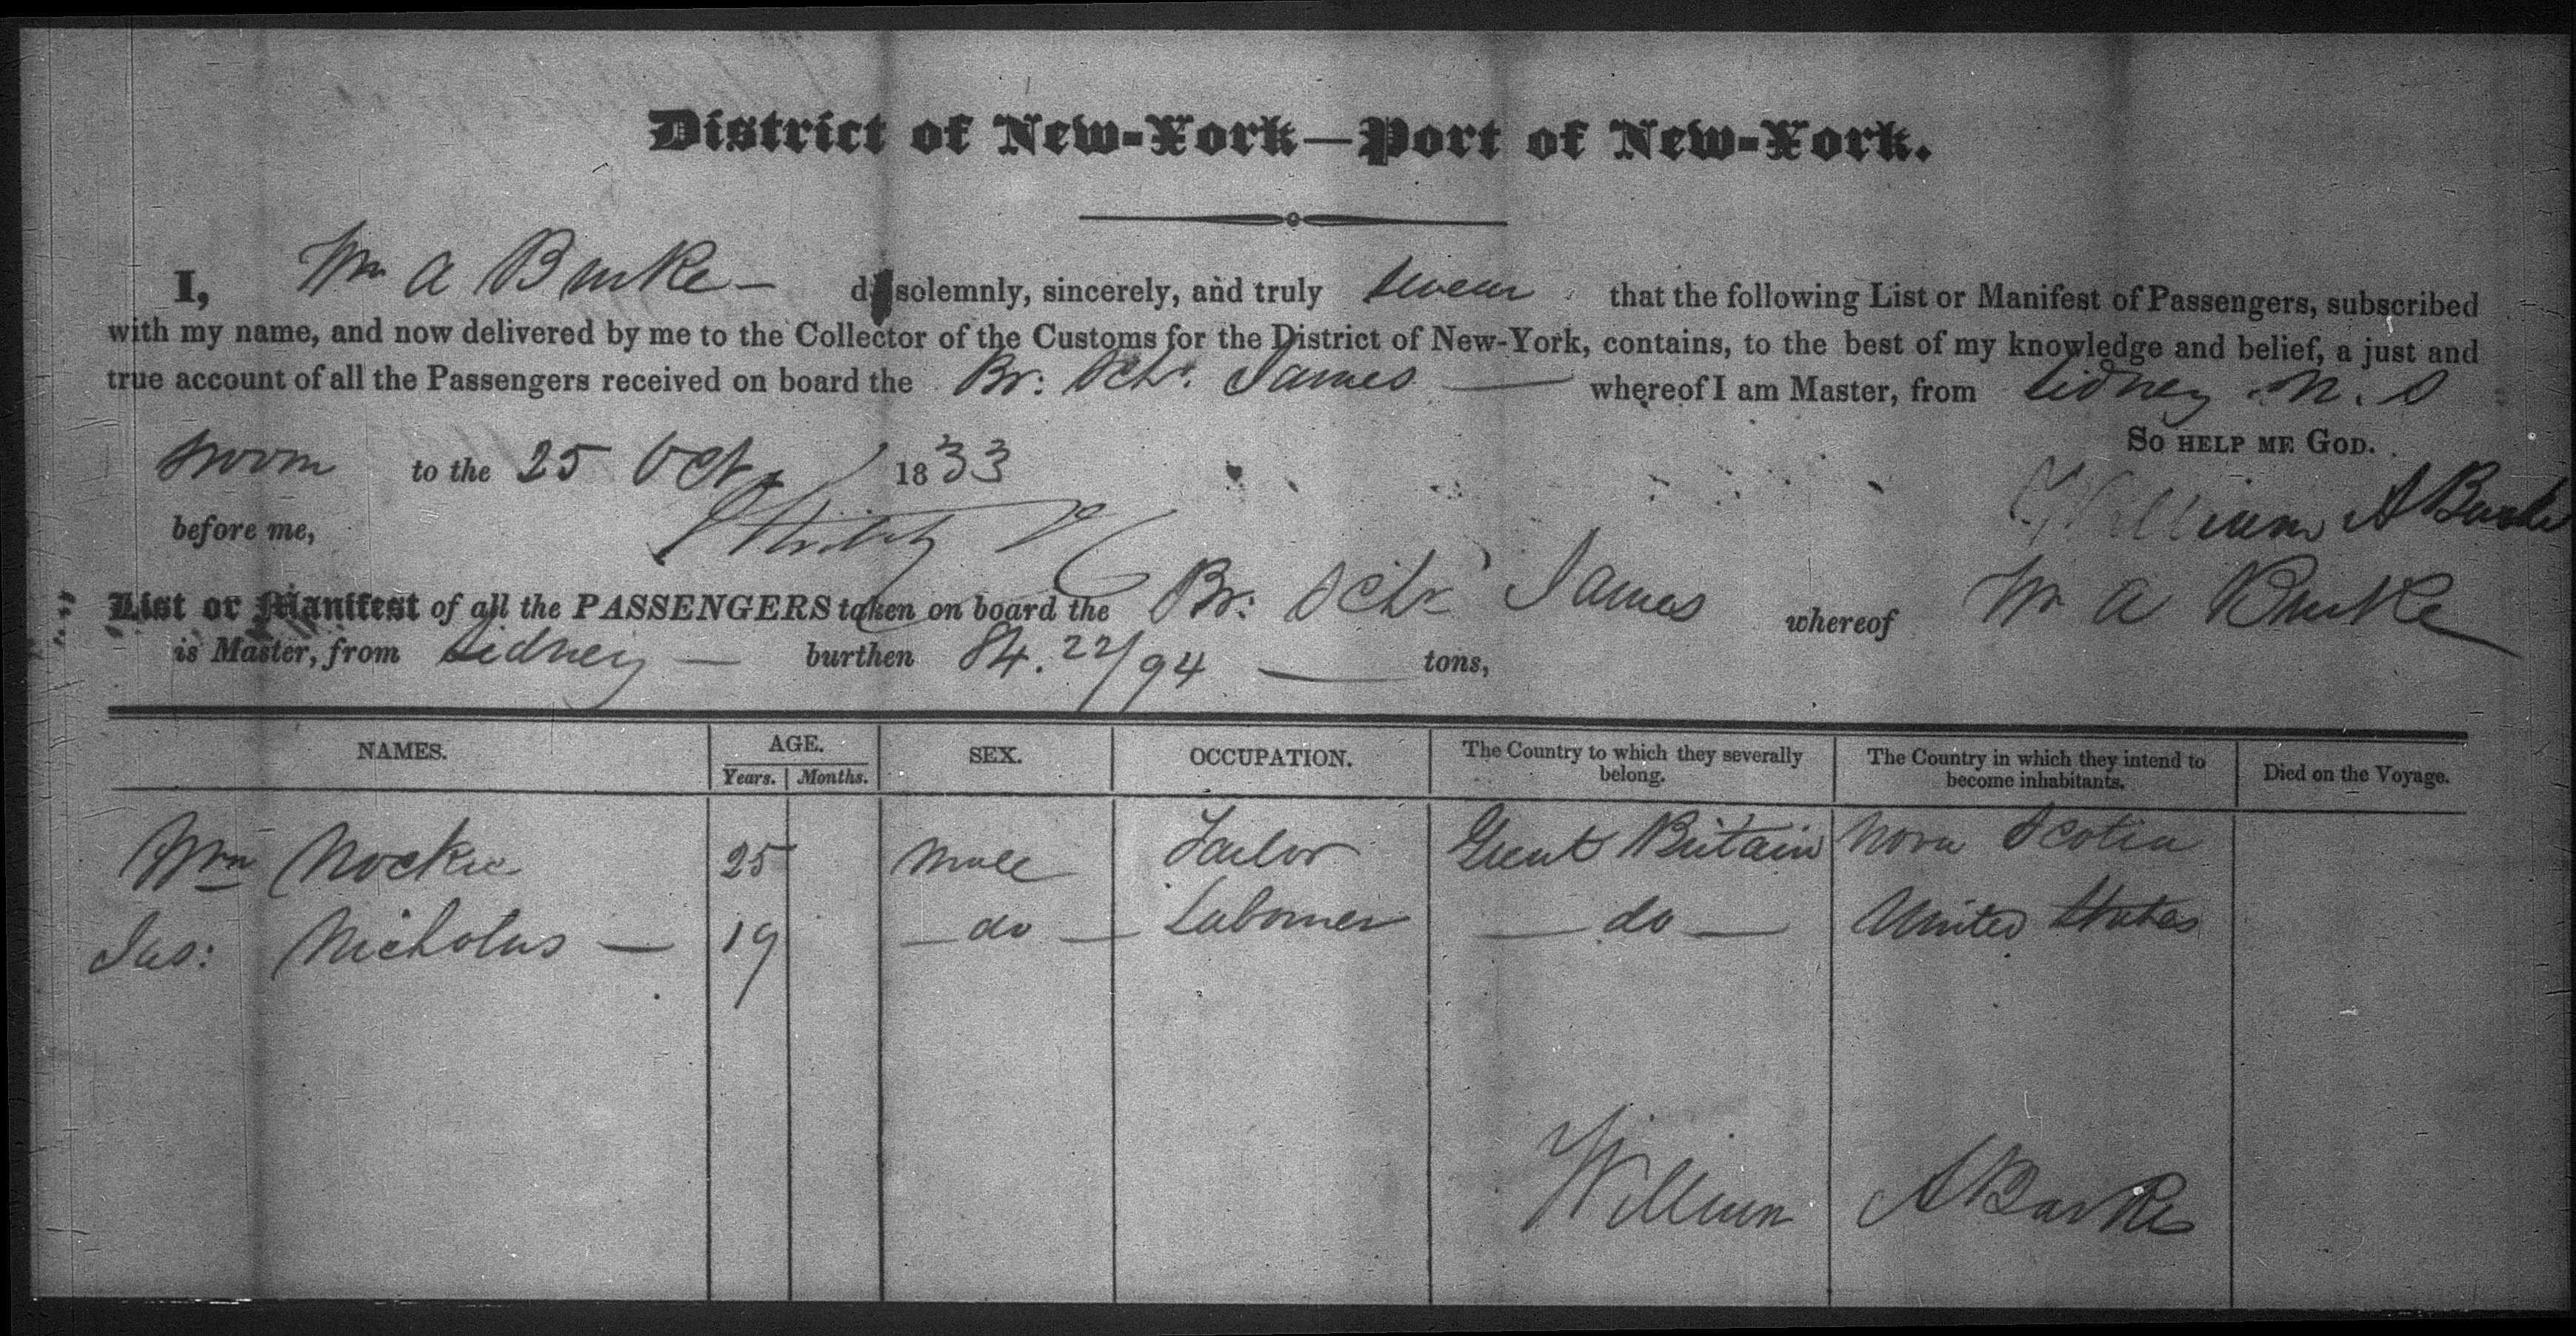 District of New-York—Port of New-York.
I, Wm A Burke — do solemnly, sincerely, and truly swear that the following List or Manifest of Passengers, subscribed
with my name, and now delivered by me to the Collector of the Customs for the District of New-York, contains, to the best of my knowledge and belief, a just and
true account of all the Passengers received on board the Br: Schr. James — whereof I am Master, from Sidney N. S
So help me God.
sworn to the 25 Oct 1833
William A Burke
before me,
List or Manifest of all the PASSENGERS taken on board the Br: Schr James whereof Wm A Burke
is Master, from Sidney — burthen 84. 22/94 — tons,
NAMES. AGE. SEX. OCCUPATION. The Country to which they severally belong. The Country in which they intend to become inhabitants. Died on the Voyage.
Years. Months.
Wm 25 Male Tailor Great Britain Nova Scotia
Jas: Nicholas — 19 — do — Labourer — do — United States
William A Burke